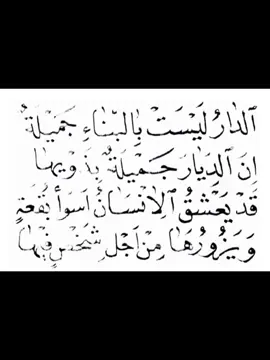 اَلدَّارُ لَيْسَتْ بِالبِنَاءِ جَمِيْلَةٌ
اِنَ الدِيَارَ جَمِيْلَةٌ بِذَوِيهَا
قَدْ يَعْشَقُ الاِنْسَانُ اَسْوَأَ بُقْعَةٍ
وَيَزُورُهَا مِنْ اَجْلِ شَخْصٍ فِيْهَا